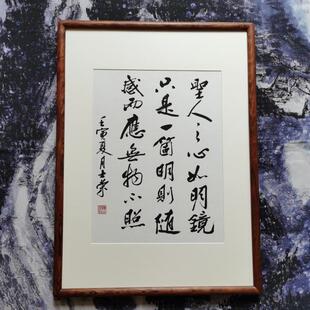 聖人之心如明鏡
只是一箇明則隨
感而應無物不照
壬寅夏月士荣